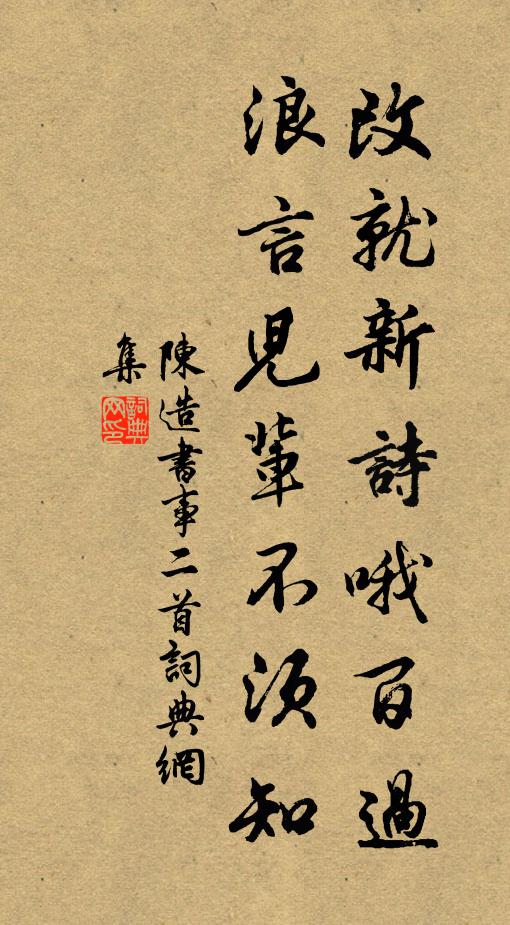 改就新詩哦百過
浪言兒輩不須知
陳造書事二首詞典網
集
詞典
网印